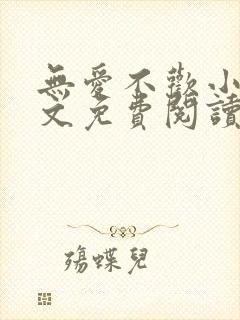 無愛不歡小
文免費閱讀
殤蝶兒